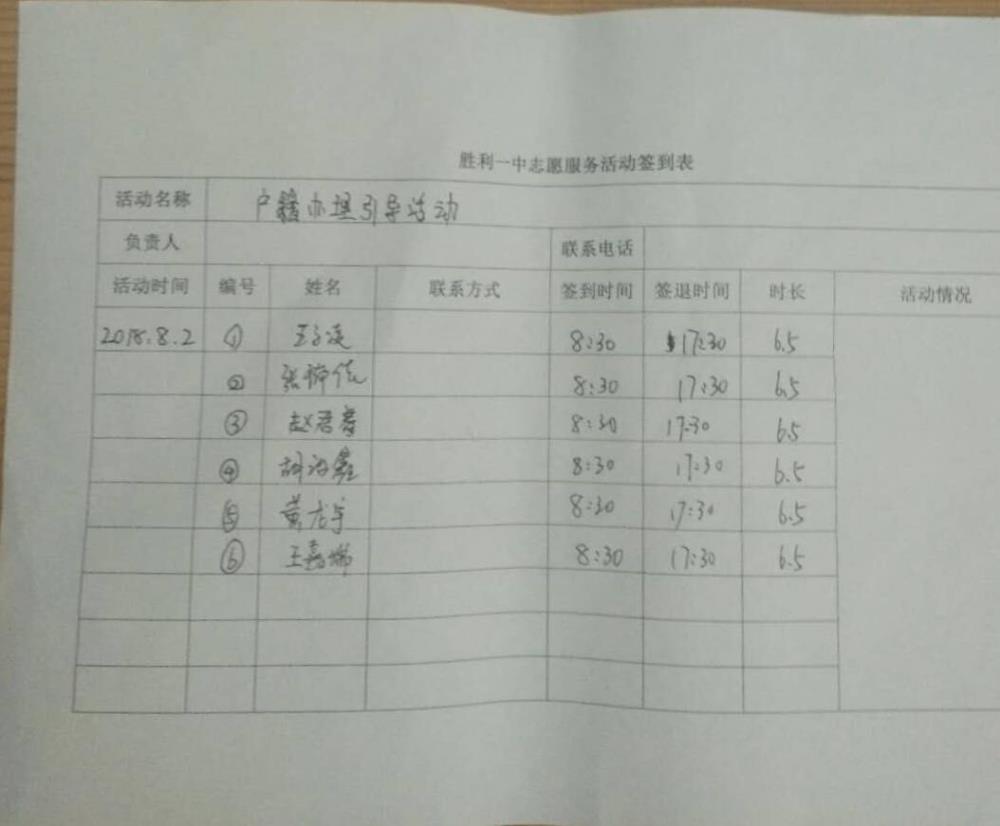 胜利一中志愿服务活动签到表
活动名称 户籍办理引导活动
负责人 联系电话
活动时间 编号 姓名 联系方式 签到时间 签退时间 时长 活动情况
2018.8.2 ① 王子凌 8:30 17:30 6.5
② 张 8:30 17:30 6.5
③ 赵君 8:30 17:30 6.5
④ 胡 8:30 17:30 6.5
⑤ 黄 8:30 17:30 6.5
⑥ 王嘉瑞 8:30 17:30 6.5